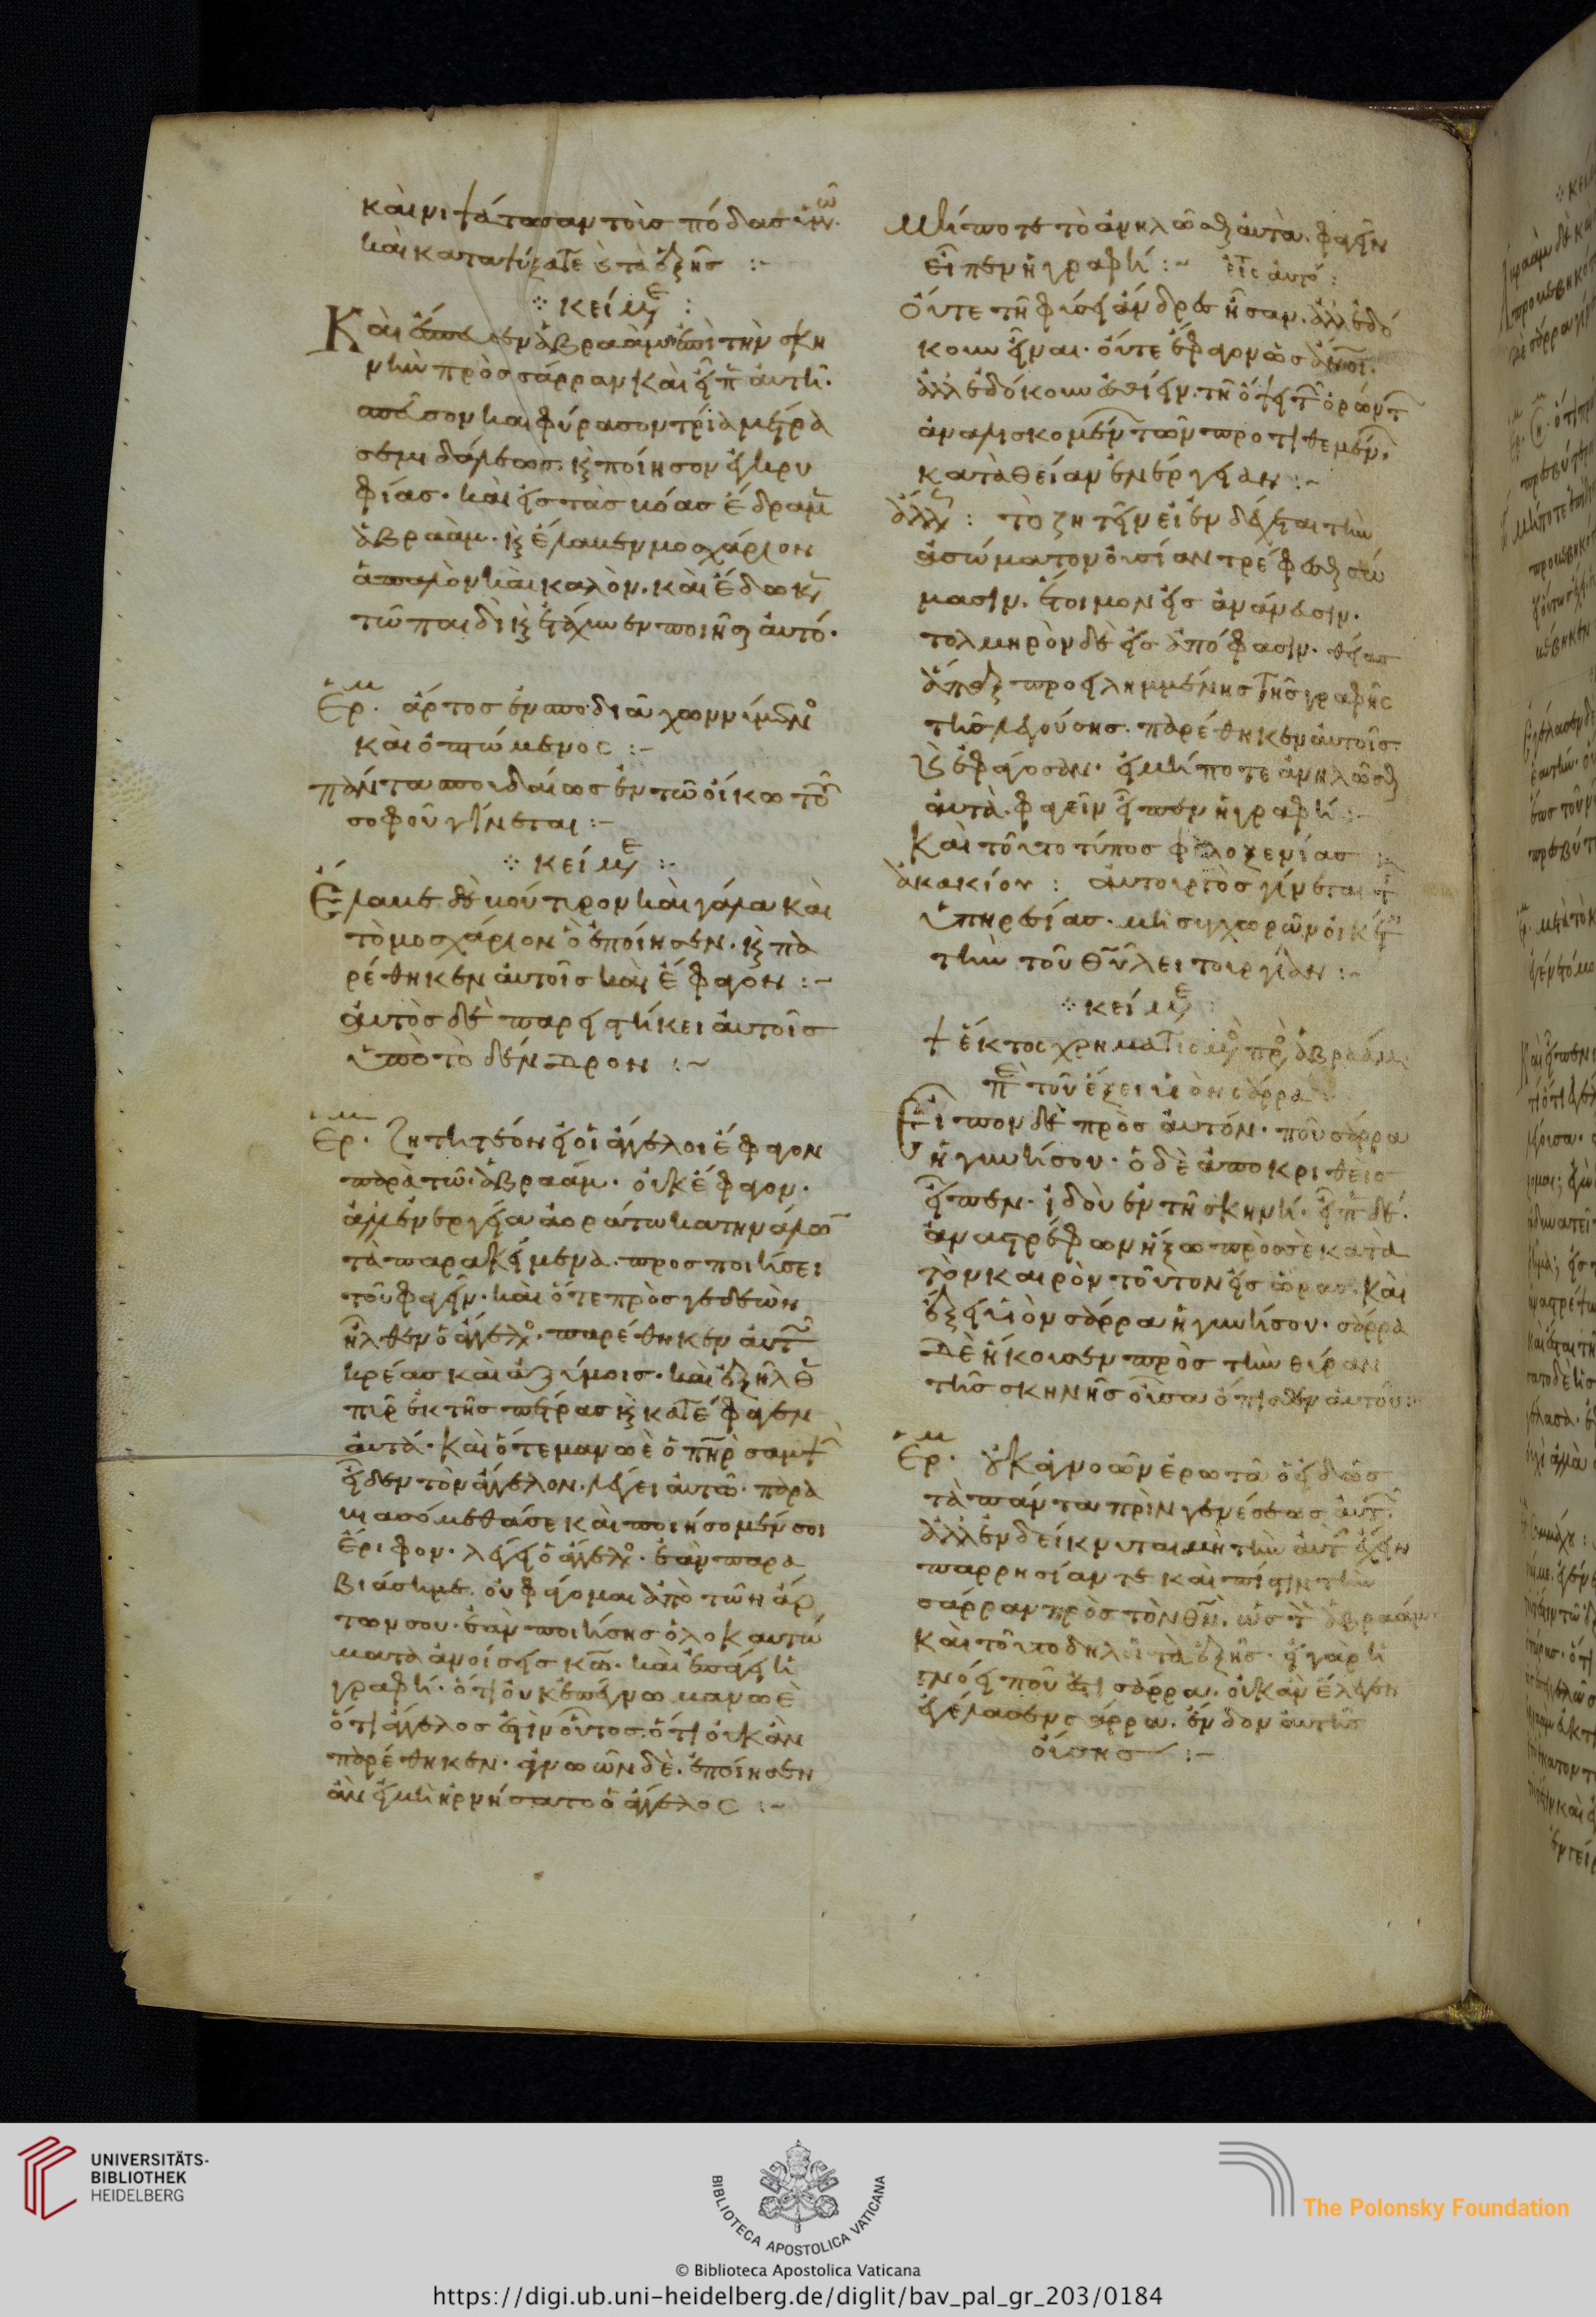 καὶ νιψάτωσαν τοὺς πόδας ὑμῶν.
καὶ καταψύξατε ὑπὸ τὰ ἑξῆς :-
κείμε :
Καὶ ἔσπευσεν ἀβραὰμ ἐπὶ τὴν σκη
νὴν πρὸς σάρραν καὶ εἶπ αὐτῆ.
σπεῦσον καὶ φύρασον τρία μέτρα
σεμιδάλεως. κ ποίησον ἐγκρυ
φίας. καὶ εἰς τὰς βόας ἔδραμ
ἀβραάμ. κ ἔλαβεν μοσχάριον
ἁπαλὸν καὶ καλὸν. καὶ ἔδωκ
τῶ παιδὶ κ ἐτάχυνεν ποιῆσαι αὐτό.
ἄρτος ἐν
καὶ ὀπτώμενος :-
πάντα σπουδαίως ἐν τῶ οἴκω τοῦ
σοφοῦ γίνεται :-
κείμε :-
Ἔλαβε δὲ βούτυρον καὶ γάλα καὶ
τὸ μοσχάριον ὃ ἐποίησεν. κ πα
ρέθηκεν αὐτοῖς καὶ ἔφαγον :-
αὐτὸς δὲ παρειστήκει αὐτοῖς
ὑπὸ τὸ δένδρον :-
Ζητητέον εἰ οἱ ἄγγελοι ἔφαγον
παρὰ τῶ ἀβραάμ. οὐκ ἔφαγον.
ἀλλ ἐνεργεία ἀοράτω κατηνάλω
τὰ παρακείμενα. προσποιήσει
τοῦ φαγεῖν. καὶ ὅτε πρὸς γεδεὼν
ἦλθεν ὁ ἄγγελο. παρέθηκεν αὐτ
κρέας καὶ ἀζύμους. καὶ ἐξῆλθ
πῦρ ἐκ τῆς πέτρας κ κατέφαγεν
αὐτά. καὶ ὅτε μανωὲ ὁ πηρ σαμψ
εἶδεν τὸν ἄγγελον. λέγει αὐτῶ. παρα
βιασόμεθά σε καὶ ποιήσομέν σοι
ἔριφον. λέγει ὁ ἄγγελο. ἐὰν παρα
βιάση με. οὐ φάγομαι ἀπὸ τῶν ἄρ
των σου. ἐὰν ποιήσης ὁλοκαυτώ
ματα ἀνοίσεις κω. καὶ ἐπάγει ἡ
γραφή. ὅτι οὐκ ἐπέγνω μανωὲ
ὅτι ἄγγελος ἐστὶν οὗτος. ὅτι οὐκ ἂν
παρέθηκεν. ἀγνοῶν δὲ. ἐποίησεν
ἂν εἰ μὴ ἠρνήσατο ὁ ἄγγελος :-
Μήποτε τὸ ἀναλῶσαι αὐτὰ. φαγεῖν
εἶπεν ἡ γραφή :-
οὔτε τῆ φύσει ἄνδρες ἦσαν. ἀλλ ἐδό
κουν εἶναι. οὔτε ἔφαγον ὡς ἄνοι.
ἀλλ ἐδόκουν ἐσθίειν. τῆ ὄψει τ ὁρώντ
ἀναλισκομέν τῶν προτιθεμέν.
κατὰ θείαν ἐνέργειαν :-
ἄλλ : τὸ ζητεῖν εἰ ἐνδέχεται τὴν
ἀσώματον οὐσίαν τρέφεσθαι σώ
μασιν. ἕτοιμον εἰς ἀνάνευσιν.
τολμηρὸν δὲ εἰς ἀπόφασιν. θείας
ἅπαξ προειλημμένης τῆς γραφῆς
τῆς λεγούσης. παρέθηκεν αὐτοῖς.
κ ἐφάγοσαν. εἰ μήποτε ἀναλῶσαι
αὐτὰ. φαγεῖν εἶπεν ἡ γραφή :-
Καὶ τοῦτο τύπος φιλοξενίας
ἀκακίου : αὐτουργὸς γίνεται τ
ὑπηρεσίας. μὴ συγχωρῶν οἰκέτ
τὴν τοῦ θῦ λειτουργίαν :-
κείμε :
ἕκτος χρηματισμο πρ ἀβραάμ.
π τοῦ ἕξει υἱὸν σάρρα
Εἶπον δὲ πρὸς αὐτόν. ποῦ σάρρα
ἡ γυνή σου. ὁ δὲ ἀποκριθεὶς
εἶπεν. ἰδοὺ ἐν τῆ σκηνῆ. εἶπ δέ.
ἀναστρέφων ἥξω πρὸς σὲ κατὰ
τὸν καιρὸν τοῦτον εἰς ὥρας. καὶ
ἕξει υἱὸν σάρρα ἡ γυνή σου. σάρρα
δὲ ἤκουσεν πρὸς τὴν θύραν
τῆς σκηνῆς οὖσα ὄπισθεν αὐτοῦ :-
οὐκ ἀγνοῶν ἐρωτᾶ ὁ εἰδὼς
τὰ πάντα πρὶν γενέσεως αὐτ
ἀλλ ἐνδείκνυται μὴ τὴν αὐτ ἔχειν
παρρησίαν τε καὶ πίστιν τὴν
σάρραν πρὸς τὸν θν. ὡς τ ἀβραάμ.
καὶ τοῦτο δηλοῖ τὰ ἑξῆς. εἰ γὰρ ἠ
γνόει ποῦ ἐστι σάρρα. οὐκ ἂν ἔλεγεν
ἐγέλασεν σάρρα. ἔνδον αὐτῆς
οὔσης :-
UNIVERSITÄTS-
BIBLIOTHEK
HEIDELBERG
BIBLIOTECA APOSTOLICA VATICANA
The Polonsky Foundation
© Biblioteca Apostolica Vaticana
https://digi.ub.uni-heidelberg.de/diglit/bav_pal_gr_203/0184